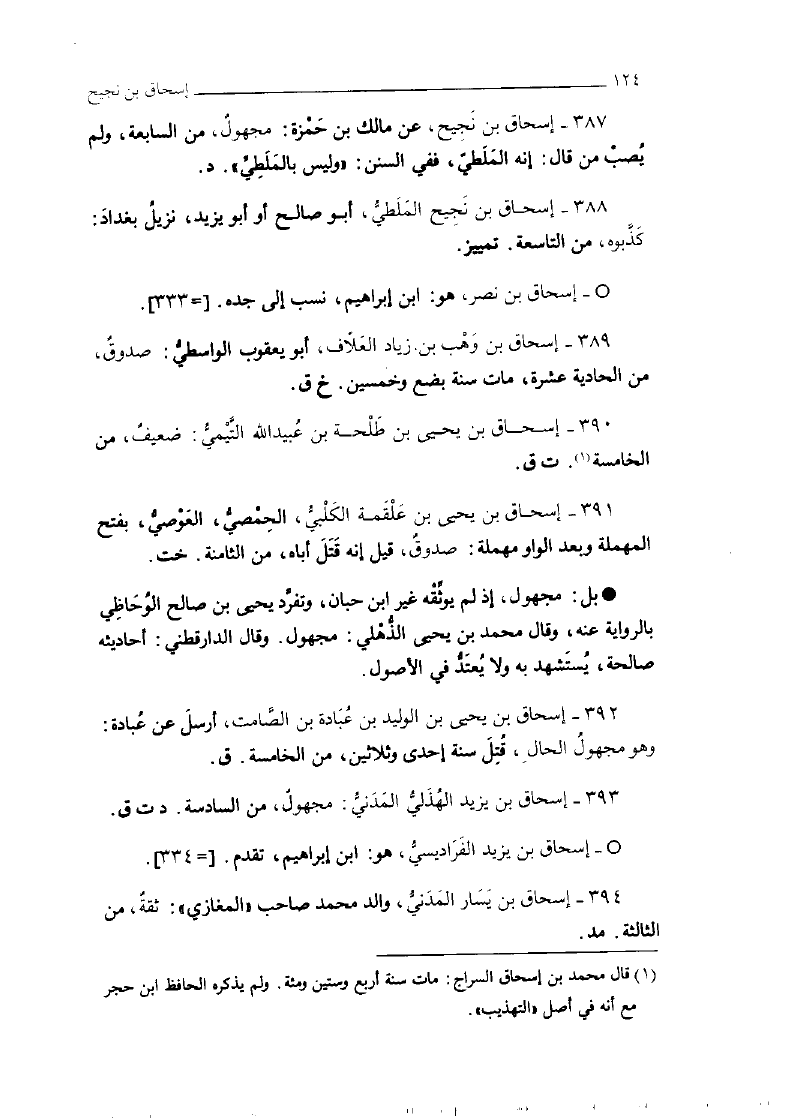 ١٢٤ إسحاق بن نجيح
٣٨٧ ـ إسحاق بن نَجيح، عن مالك بن حَمْزة: مجهولٌ، من السابعة، ولم
يُصبْ من قال: إنه المَلَطيّ، ففي السنن: «وليس بالمَلَطِيِّ». د.
٣٨٨ ـ إسحـاق بن نَجِيح المَلَطيُّ، أبـو صالـح أو أبو يزيد، نزيلُ بغدادَ:
كَذَّبوه، من التاسعة. تمييز.
O ـ إسحاق بن نصر، هو: ابن إبراهيم، نسب إلى جده. [=٣٣٣].
٣٨٩ ـ إسحاق بن وَهْب بن زياد العَلَّاف، أبو يعقوب الواسطيُّ: صدوقٌ،
من الحادية عشرة، مات سنة بضع وخمسين. خ ق.
٣٩٠ ـ إسـحـاق بن يحيـى بن طَلْحـة بن عُبيدالله التَّيْميُّ: ضعيفٌ، من
الخامسة(١). ت ق.
٣٩١ ـ إسحـاق بن يحيى بن عَلْقَمـة الكَلْبيُّ، الحِمْصيُّ، العَوْصيُّ، بفتح
المهملة وبعد الواو مهملة: صدوقٌ، قيل إنه قَتَلَ أباه، من الثامنة. خت.
● بل: مجهول، إذ لم يوثِّقْه غير ابن حبان، وتفرَّد يحيى بن صالح الوُحَاظِي
بالرواية عنه، وقال محمد بن يحيى الذُّهْلي: مجهول. وقال الدارقطني: أحاديثه
صالحة، يُستَشهد به ولا يُعتَدُّ في الأصول.
٣٩٢ ـ إسحاق بن يحيى بن الوليد بن عُبَادة بن الصَّامت، أرسلَ عن عُبادة:
وهو مجهولُ الحال، قُتِلَ سنة إحدى وثلاثين، من الخامسة. ق.
٣٩٣ ـ إسحاق بن يزيد الهُذَليُّ المَدَنيُّ: مجهولٌ، من السادسة. د ت ق.
O ـ إسحاق بن يزيد الفَرَاديسيُّ، هو: ابن إبراهيم، تقدم. [=٣٣٤].
٣٩٤ ـ إسحاق بن يَسَار المَدَنيُّ، والد محمد صاحب «المغازي»: ثقةٌ، من
الثالثة. مد.
(١) قال محمد بن إسحاق السراج: مات سنة أربع وستين ومئة. ولم يذكره الحافظ ابن حجر
مع أنه في أصل «التهذيب».